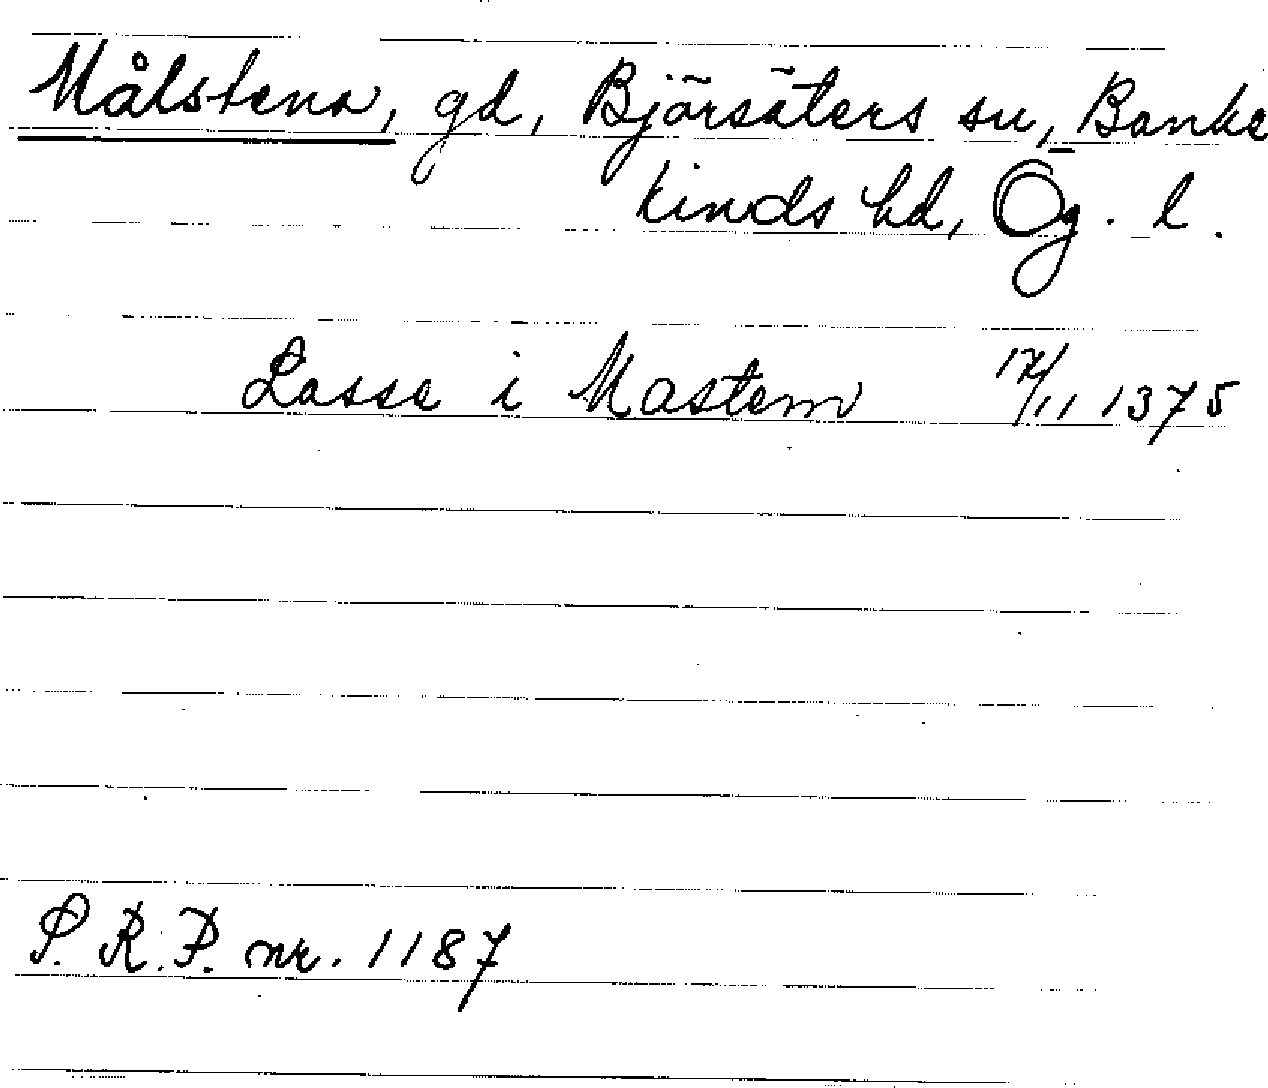 Målstena, gd, Björsäters sn, Banke
kinds hd, Ög. l.
Lasse i Mastem 17/11 1375
S. R. P. nr. 1187